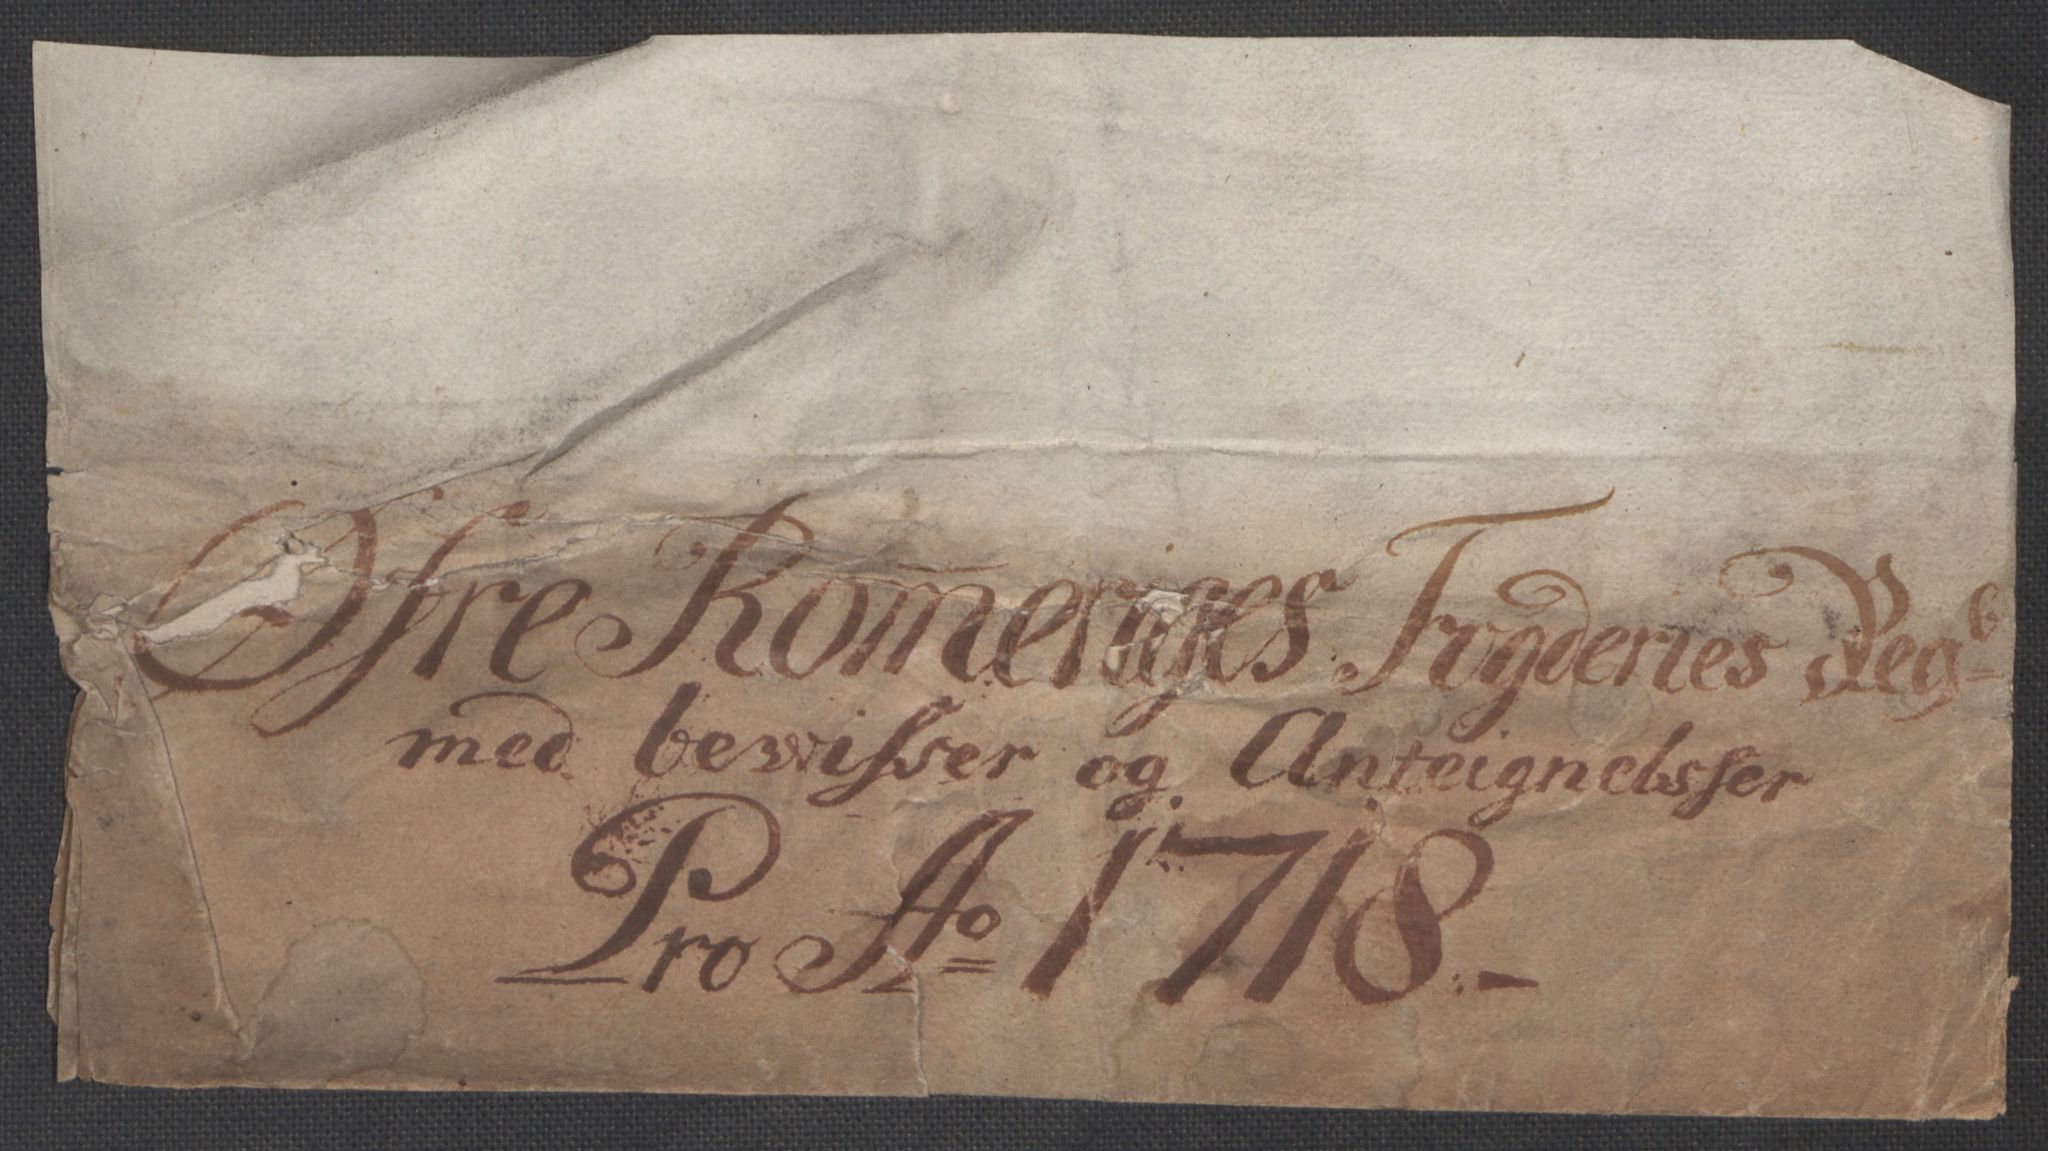 Øfre Romeriges Fogderies Regb
med bewisser og Anteignelsser
Pro Ao 1718.-